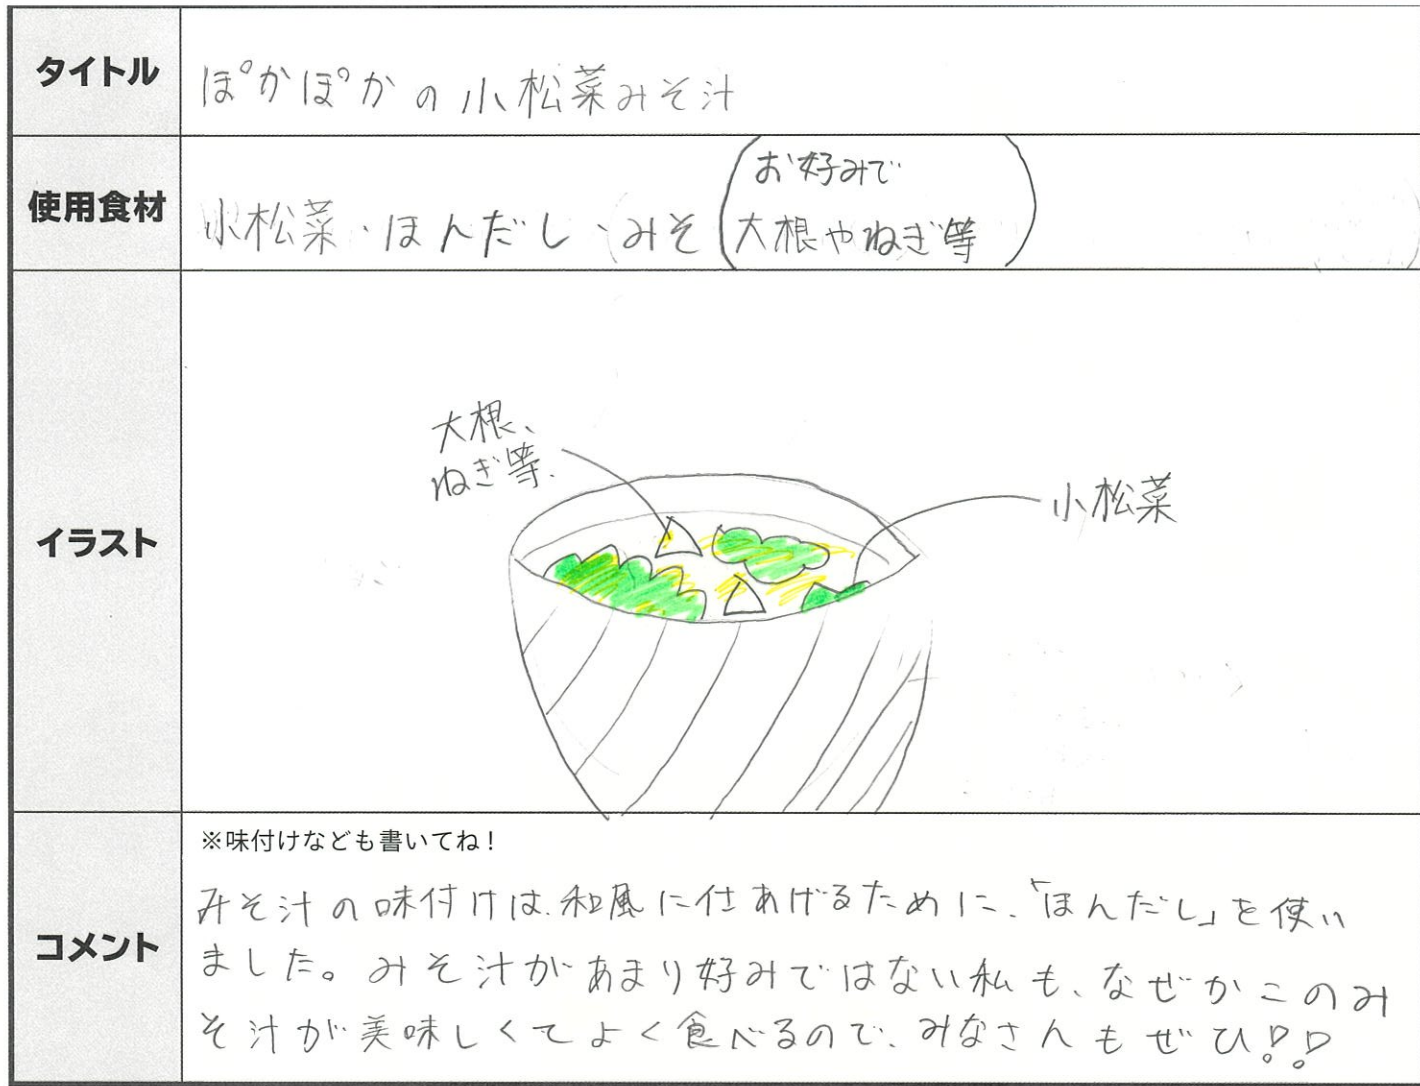 タイトル
ぽかぽかの小松菜みそ汁
使用食材
お好みで
小松菜・ほんだし、みそ
大根やねぎ等
イラスト
大根、
ねぎ等.
小松菜
コメント
※味付けなども書いてね！
みそ汁の味付けは、和風に仕あげるために、「ほんだし」を使い
ました。みそ汁があまり好みではない私も、なぜかこのみ
そ汁が美味しくてよく食べるので、みなさんもぜひ!!